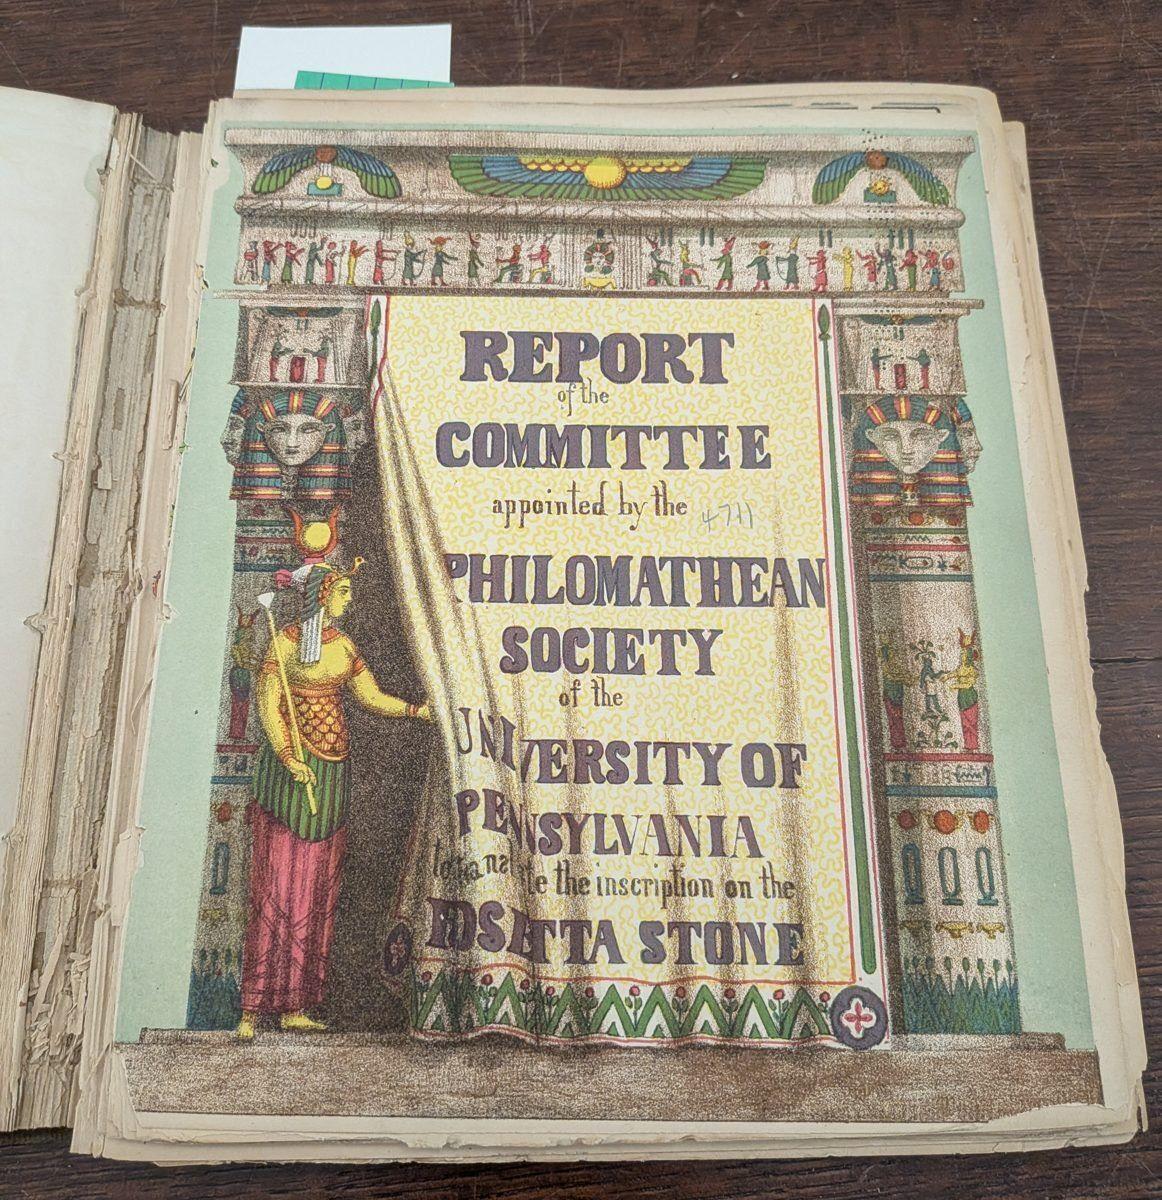 REPORT
of the
COMMITTEE
appointed by the 4711
PHILOMATHEAN
SOCIETY
of the
UNIVERSITY OF
PENNSYLVANIA
to translate the inscription on the
ROSETTA STONE